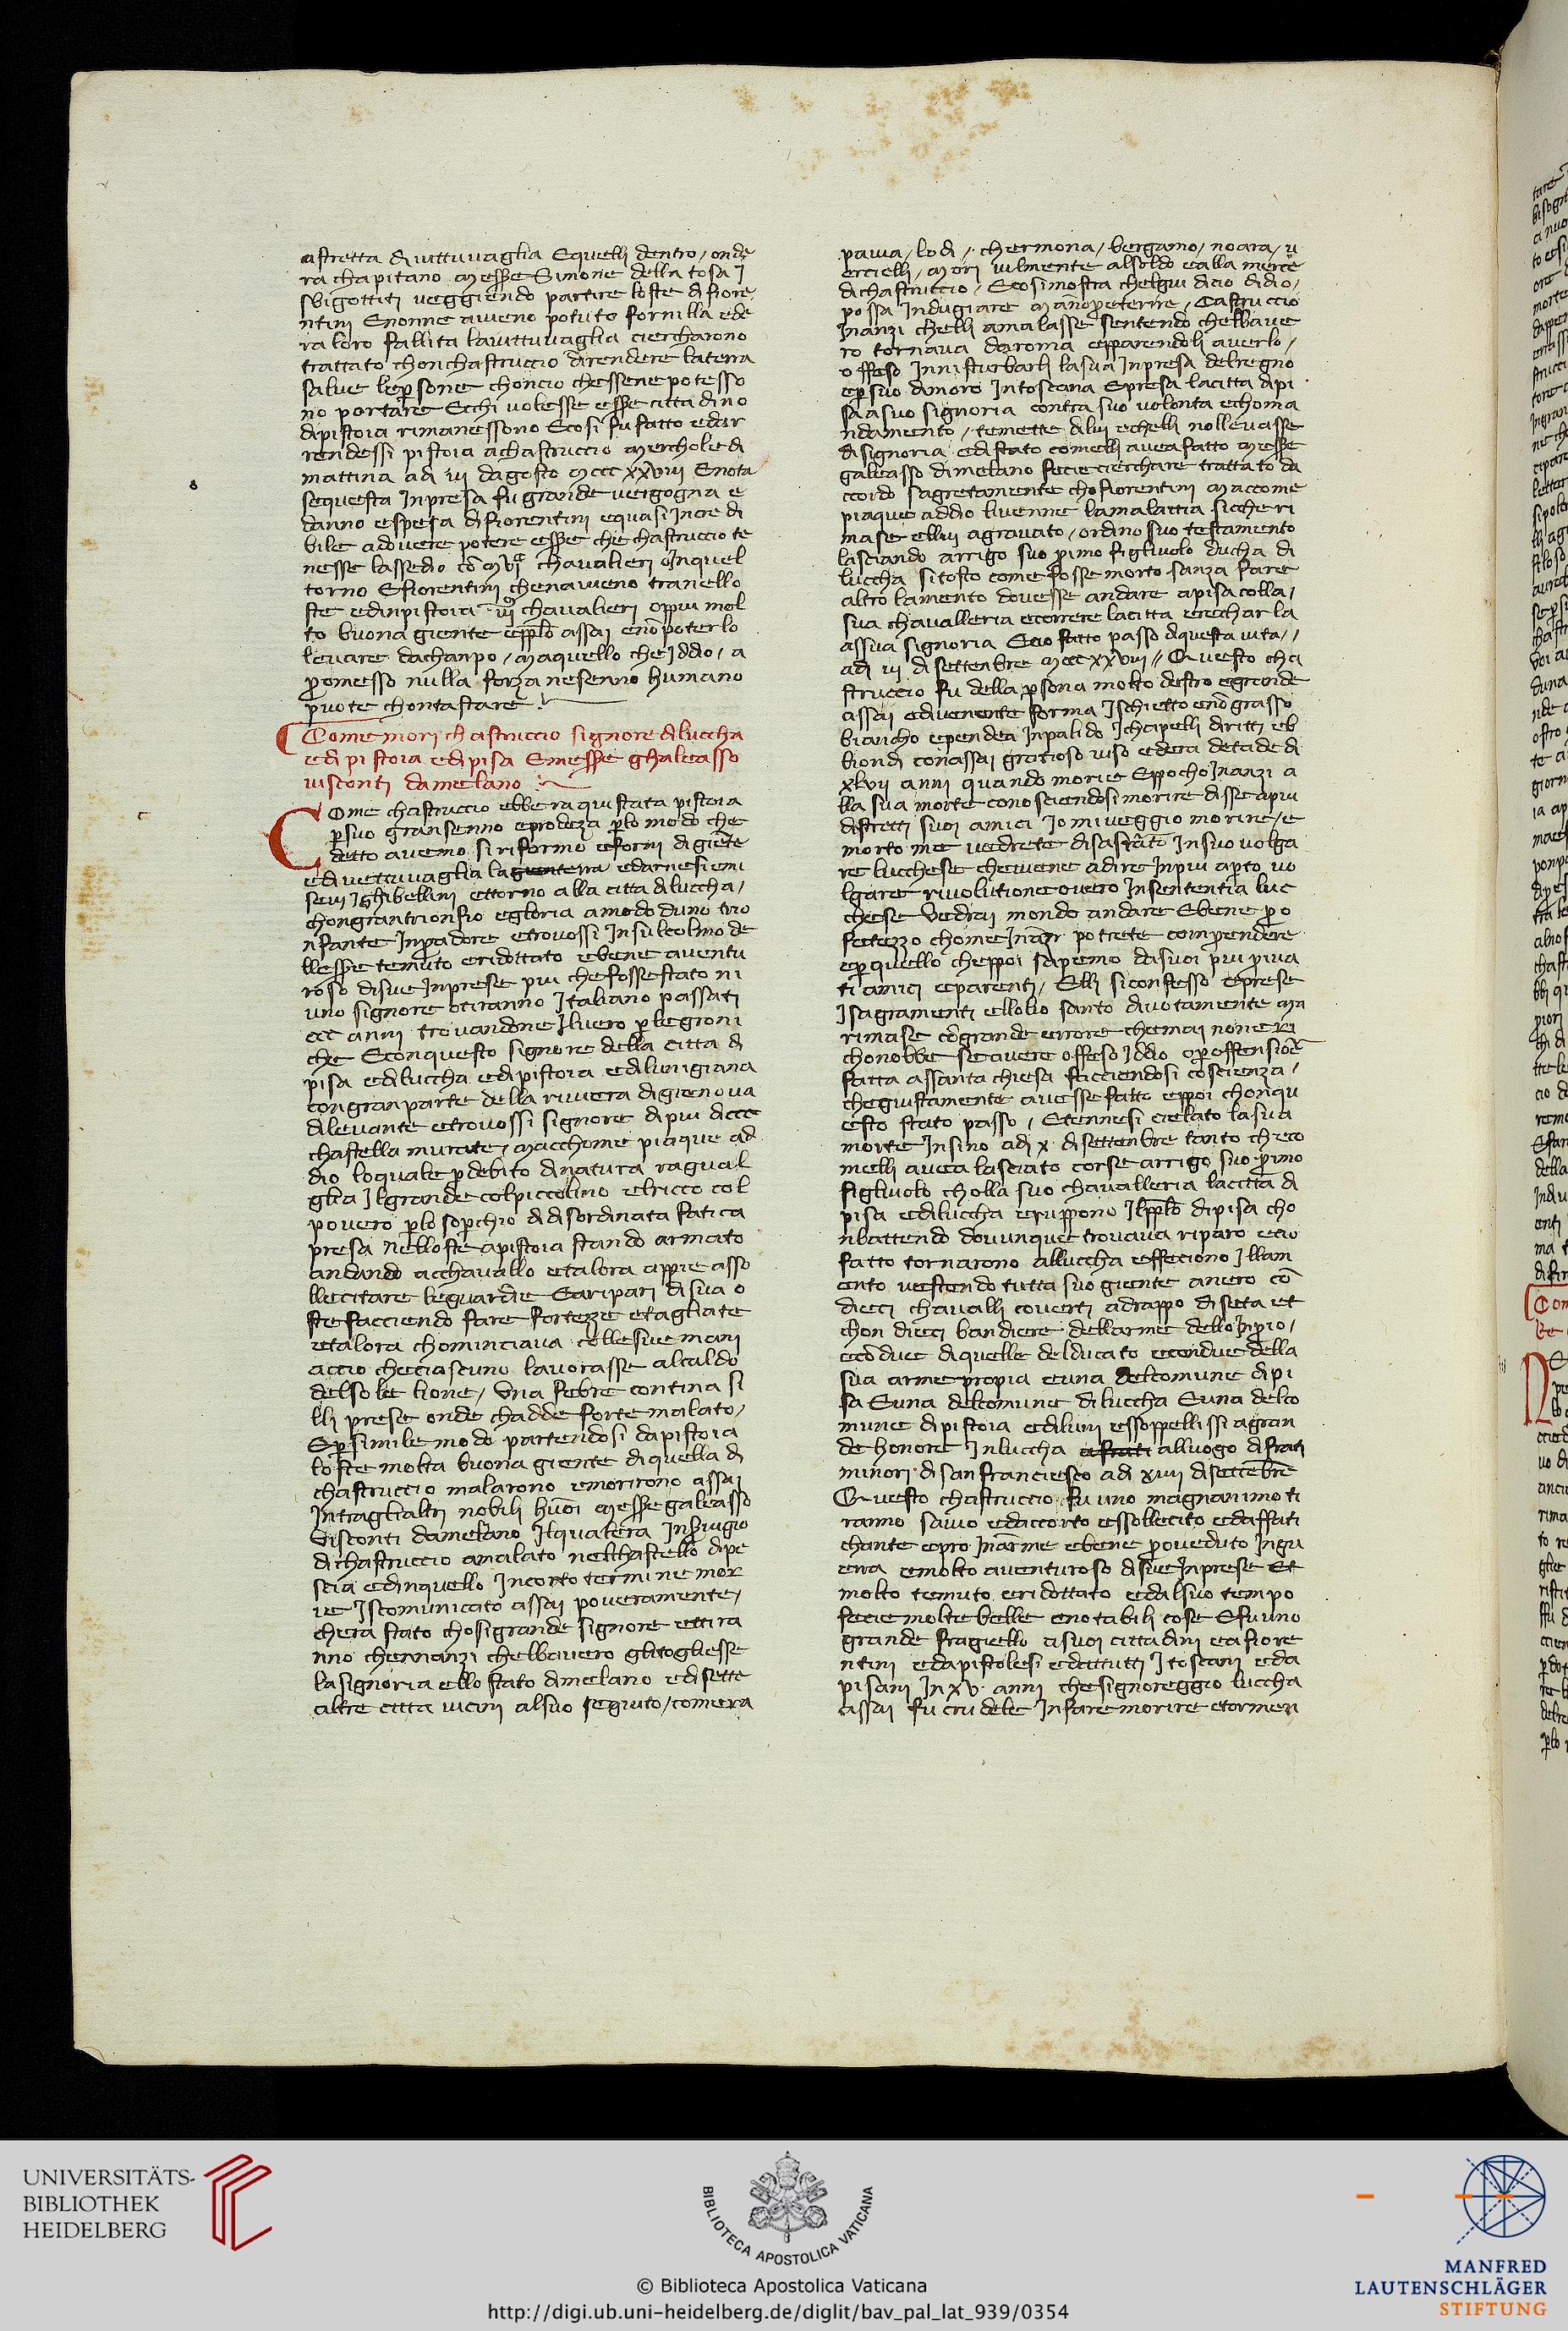 astretta di vittuvaglia Equelli dentro / onde
ra chapitano messe Simone della tosa i
sbigottiti veggiendo partire loste di fiore
ntini Enonne aveno potuto fornilla ede
ra loro fallita lavittuvaglia ciercharono
trattato chonchastruccio direndere laterra
salve lepersone choncio chessene potesso
no portare Ecchi volesse esse cittadino
dipistoia rimanessono Ecosi fu fatto edar
rendessi pistoia achastruccio merchole di
mattina adi iij dagosto mccc xxviij Enota
sequesta Inpresa fu grande vergogna e
danno espesa difiorentini equasi Incredi
bile adovere potere esse che chastruccio te
nesse lassedio co mvjc chavalieri Inquel
torno Efiorentini chenaveno tranello
ste edinpistoia iijm chavalieri oppiu mol
to buona giente epplo assai eno poterlo
levare dachanpo / maquello che Iddio / a
promesso nulla forza nesenno humano
puote chontastare
Come mori chastruccio signore diluccha
edi pistoia edi pisa Emesse ghaleasso
visconti damelano
Come chastruccio ebbe raquistata pistoia
per suo gran senno eprodeza perlo modo che
detto avemo si riformo eforni di giente
edivettuvaglia la guanterra edarnesi emi
sevi ighibellini ettorno alla citta diluccha /
chongrantrionfio egloria amodo duno trio
nfante Inpadore etrovossi Insulcolmo de
llesse temuto eridottato ebene aventu
roso disue Inprese piu chefosse stato ni
uno signore otiranno Italiano passati
ccc anni trovandone Iluero perlegioni
che Econquesto signore della citta di
pisa ediluccha edipistoia edilunigiana
congran parte della riviera digienova
dilevante etrovossi signore dipiu dccc
chastella murate / macchome piaque ad
dio loquale perdebito dinatura ragual
glia Ilgrande colpiccolino elricco col
povero perlo soperchio didisordinata fatica
presa nelloste apistoia stando armato
andando acchavallo etalora appie asso
llecitare leguardie Earipari disua o
ste facciendo fare fortezze etagliate
etalora chominciava collesue mani
accio checiascuno lavorasse alcaldo
delsole lione / Una febre contina si
lli prese onde chadde forte malato /
Epersimile modo partendosi dapistoia
loste molta buona giente diquella di
chastruccio malarono emorirono assai
Intraglialtri nobili huoi messe galeasso
Visconti damelano Ilqualera Insserugio
dichastruccio amalato nelchastello dipe
scia edinquello Incorto termine mor
ie Iscomunicato assai poveramente /
chera stato chosigrande signore ettira
nno chennanzi chelbavero glitogliesse
lasignoria ello stato dimelano edisette
altre citta vicini alsuo seguito / comera
pavia / lodi / chermona / bergamo / noara / v
ercielli / mori vilmente alsoldo ealla merce
dichastruccio / Ecosimostra chelgiu dicio didio /
possa Indugiare mano peterire / Castruccio
Inanzi chelli amalasse sentendo chelbave
ro tornava daroma epparendoli averlo /
offeso Innisturbarli lasua Inpresa delregno
eper suo dimoro Intoscana Epresa lacitta dipi
sa asuo signoria contra suo volonta echoma
ndamento / temette dilui echelli nollevasse
disignoria edistato comelli aveafatto messe
galeasso dimelano fecieciercchare trattato da
ccordo sagretamente chofiorentini maccome
piaque addio livenne lamalattia sicche ri
mase ellui agravato / ordino suo testamento
lasciando arrigo suo primo figlivolo ducha di
luccha sitosto come fosse morto sanza fare
altro lamento dovesse andare apisa colla /
sua chavalleria ecorrere lacitta erechar la
assua signoria Ecio fatto passo diquesta vita /
adi iij disettenbre mccc xxviij // Questo cha
struccio fu della persona molto destro egrande
assai edivenente forma Ischietto eno grasso
biancho ependea Inpalido Ichapelli diritti eb
biondi conassai gratioso viso edera detade di
xlvij anni quando morie Eppocho Inanzi a
lla sua morte conosciendosi morire disse apiu
distretti suoi amici Iomiveggio morire / e
morto me vedrete disasroccato Insuo volga
re lucchese cheviene adire Inpiu aperto vo
lgare rivolutione overo Insententia luc
chese Vedrai mondo andare Ebene pro
fetezzo chome Inanzi potrete conprendere
eperquello cheppoi sapemo dasuoi piu priva
ti amici eparenti / Elli siconfesso eprese
Isagramenti ellolio santo divotamente ma
rimase cogrande errore chemai none ri
chonobbe seavere offeso Iddio operoffensione
fatta assanta chiesa facciendosi coscienza /
chegiustamente avesse fatto eppoi chonqu
esto stato passo / Etennesi cielato lasua
morte Insino adi x disettenbre tanto checo
melli avea lasciato corse arrigo suo primo
figlivolo cholla suo chavalleria lacitta di
pisa ediluccha eruppono Ilpplo dipisa cho
nbattendo dovunque trovava riparo ecio
fatto tornarono alluccha effeciono Illam
ento vestendo tutta suo giente anero co
dieci chavalli coverti adrappo diseta et
chon dieci bandiere dellarme dello Inperio /
eco due diquelle delducato econdue della
sua arme propia euna delcomune dipi
sa Euna delcomune diluccha Euna delco
mune dipistoia ediluni essoppellissi agran
de honore Inluccha afrati alluogo difrati
minori disanfranciesco adi xiiij disettenbre
Questo chastruccio fu uno magnanimo ti
ranno savio edaccorto essollecito edaffati
chante epro Inarme ebene proveduto Ingu
erra emolto aventuroso disue Inprese Et
molto temuto eridottato edalsuo tempo
fecie molte belle enotabili cose Efu uno
grande fragiello asuoi cittadini eafiore
ntini edapistolesi edattutti Itoscani eda
pisani In xv anni chesignoreggio luccha
assai fu crudele Infare morire etormen
UNIVERSITÄTS-
BIBLIOTHEK
HEIDELBERG
BIBLIOTECA APOSTOLICA VATICANA
MANFRED
LAUTENSCHLÄGER
STIFTUNG
© Biblioteca Apostolica Vaticana
http://digi.ub.uni-heidelberg.de/diglit/bav_pal_lat_939/0354